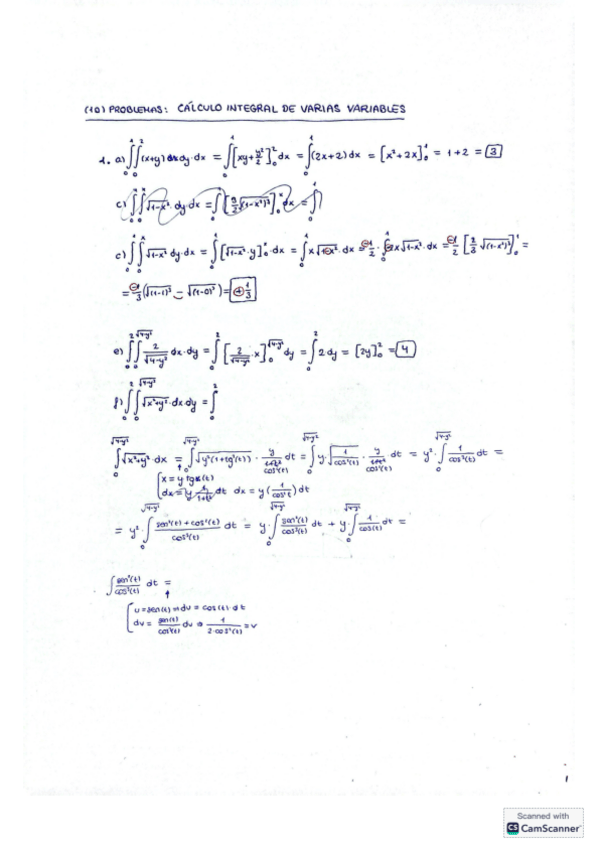 (10) PROBLEMAS: CÁLCULO INTEGRAL DE VARIAS VARIABLES
1. a) ∫₀¹∫₀² (x+y) dy·dx = ∫₀¹ [xy + y²/2]₀² dx = ∫₀¹ (2x+2) dx = [x²+2x]₀¹ = 1+2 = 3
c) ∫₀¹∫₀ˣ √(1-x²) · dy·dx =
c) ∫₀¹∫₀ˣ √(1-x²) dy·dx = ∫₀¹ [√(1-x²) · y]₀ˣ · dx = ∫₀¹ x√(1-x²) · dx = -1/2 · ∫₀¹ -2x√(1-x²) · dx = -1/2 [2/3 √(1-x²)³]₀¹ =
= -1/3 (√(1-1)³ - √(1-0)³) = +1/3
e) ∫₀²∫₀^√(4-y²) 2/√(4-y²) dx·dy = ∫₀² [2/√(4-y²) · x]₀^√(4-y²) dy = ∫₀² 2 dy = [2y]₀² = 4
f) ∫₀²∫₀^√(4-y²) √(x²+y²) · dx·dy = ∫₀²
∫₀^√(4-y²) √(x²+y²) · dx = ∫₀^√(4-y²) √(y²(1+tg²(t))) · y/cos²(t) dt = ∫₀^√(4-y²) y·√(1/cos²(t)) · y/cos²(t) dt = y² · ∫₀^√(4-y²) 1/cos³(t) dt =
x = y tg(t)
dx = y 1/(1+t²) dt dx = y (1/cos²t) dt
= y² · ∫₀^√(4-y²) (sen²(t) + cos²(t))/cos³(t) dt = y · ∫₀^√(4-y²) sen²(t)/cos³(t) dt + y · ∫₀^√(4-y²) 1/cos(t) dt =
∫ sen²(t)/cos³(t) dt =
u = sen(t) ⇒ du = cos(t) · dt
dv = sen(t)/cos³(t) dv ⇒ 1/(2·cos²(t)) = v
1
Scanned with
CS CamScanner